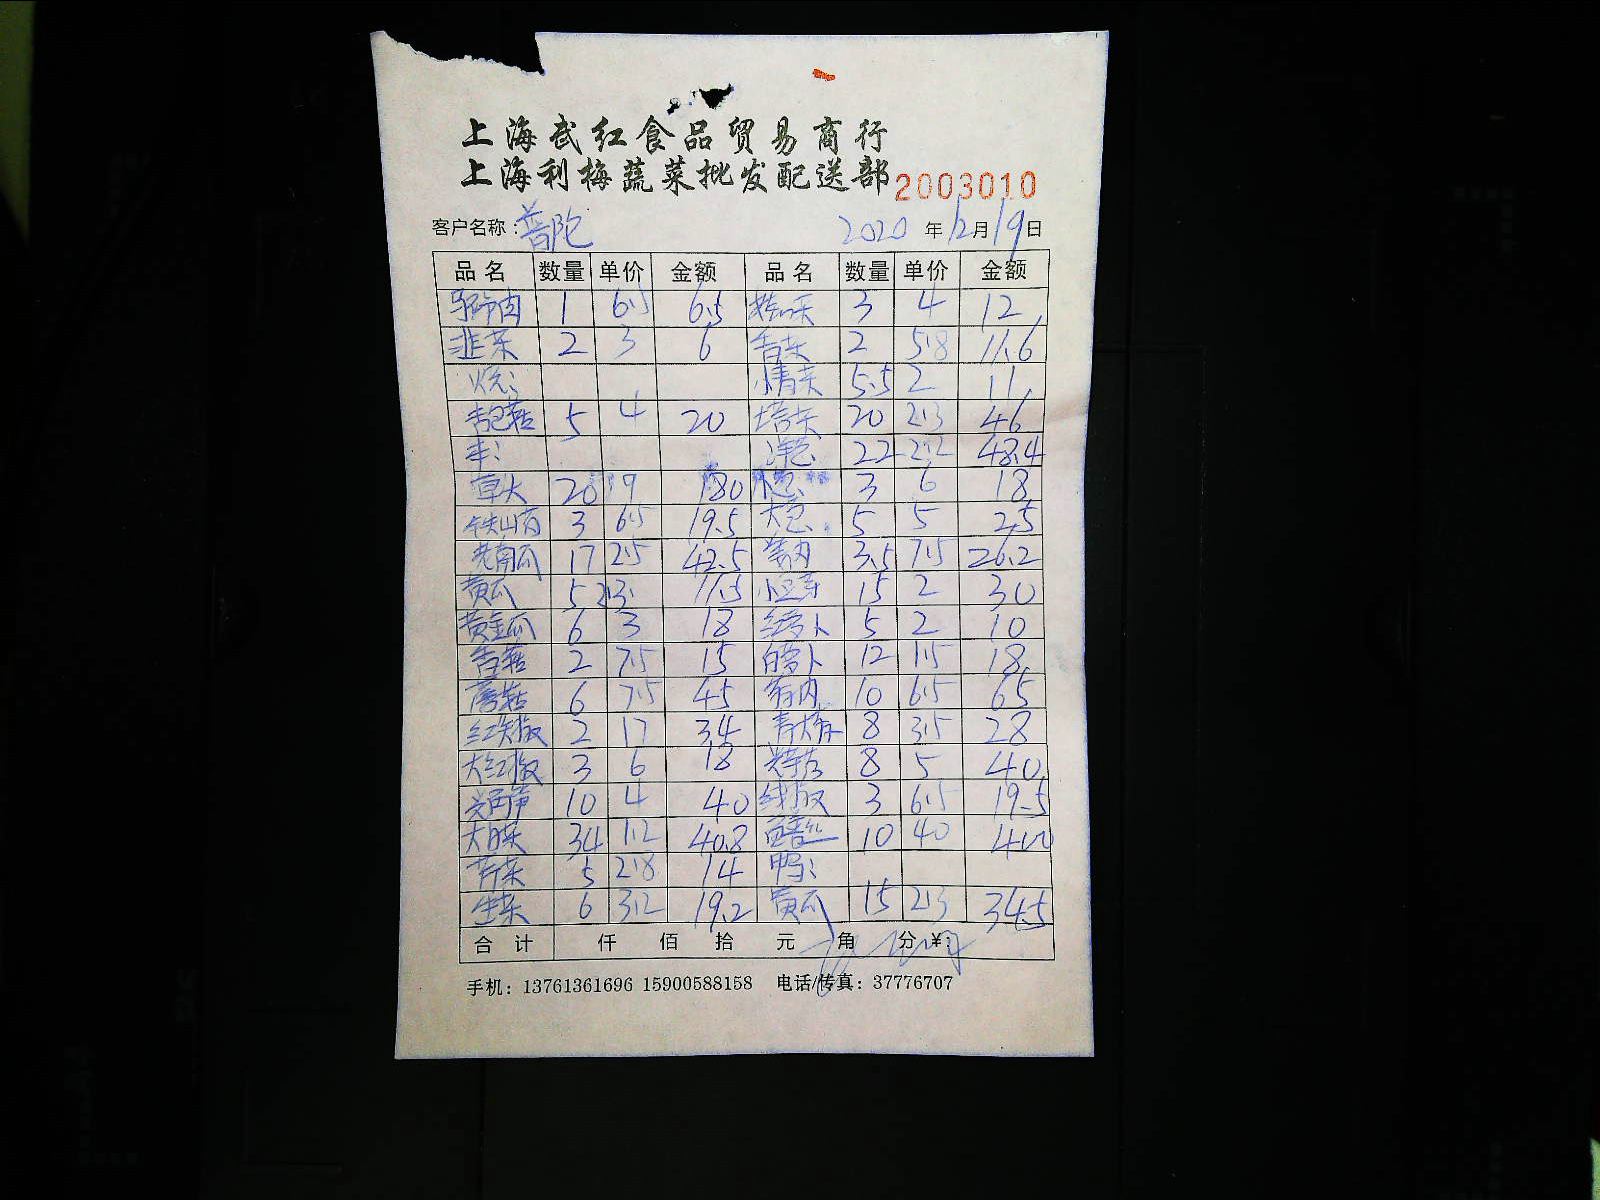 上海武红食品贸易商行
上海利梅蔬菜批发配送部 2003010
客户名称：普陀 2020 年 12 月 19 日
品名 数量 单价 金额 品名 数量 单价 金额
1 6.5 6.5 3 4 12
韭菜 2 3 6 香菜 2 5.8 11.6
小青菜 5.5 2 11
杏包菇 5 4 20 塔菜 20 2.3 46
洋葱 22 2.2 48.4
草头 20 9 180 小葱 3 6 18
铁山药 3 6.5 19.5 大葱 5 5 25
老南瓜 17 2.5 42.5 姜肉 3.5 7.5 26.2
黄瓜 5 2.3 11.5 小豆芽 15 2 30
黄金瓜 6 3 18 红萝卜 5 2 10
香菇 2 7.5 15 白萝卜 12 1.5 18
蘑菇 6 7.5 45 10 6.5 65
红尖椒 2 17 34 8 3.5 28
大红椒 3 6 18 8 5 40
10 4 40 线椒 3 6.5 19.5
大白菜 34 1.2 40.8 10 40 400
芹菜 5 2.8 14 鸭：
生菜 6 3.2 19.2 黄瓜 15 2.3 34.5
合计 仟 佰 拾 元 角 分 ¥：
手机：13761361696 15900588158 电话/传真：37776707